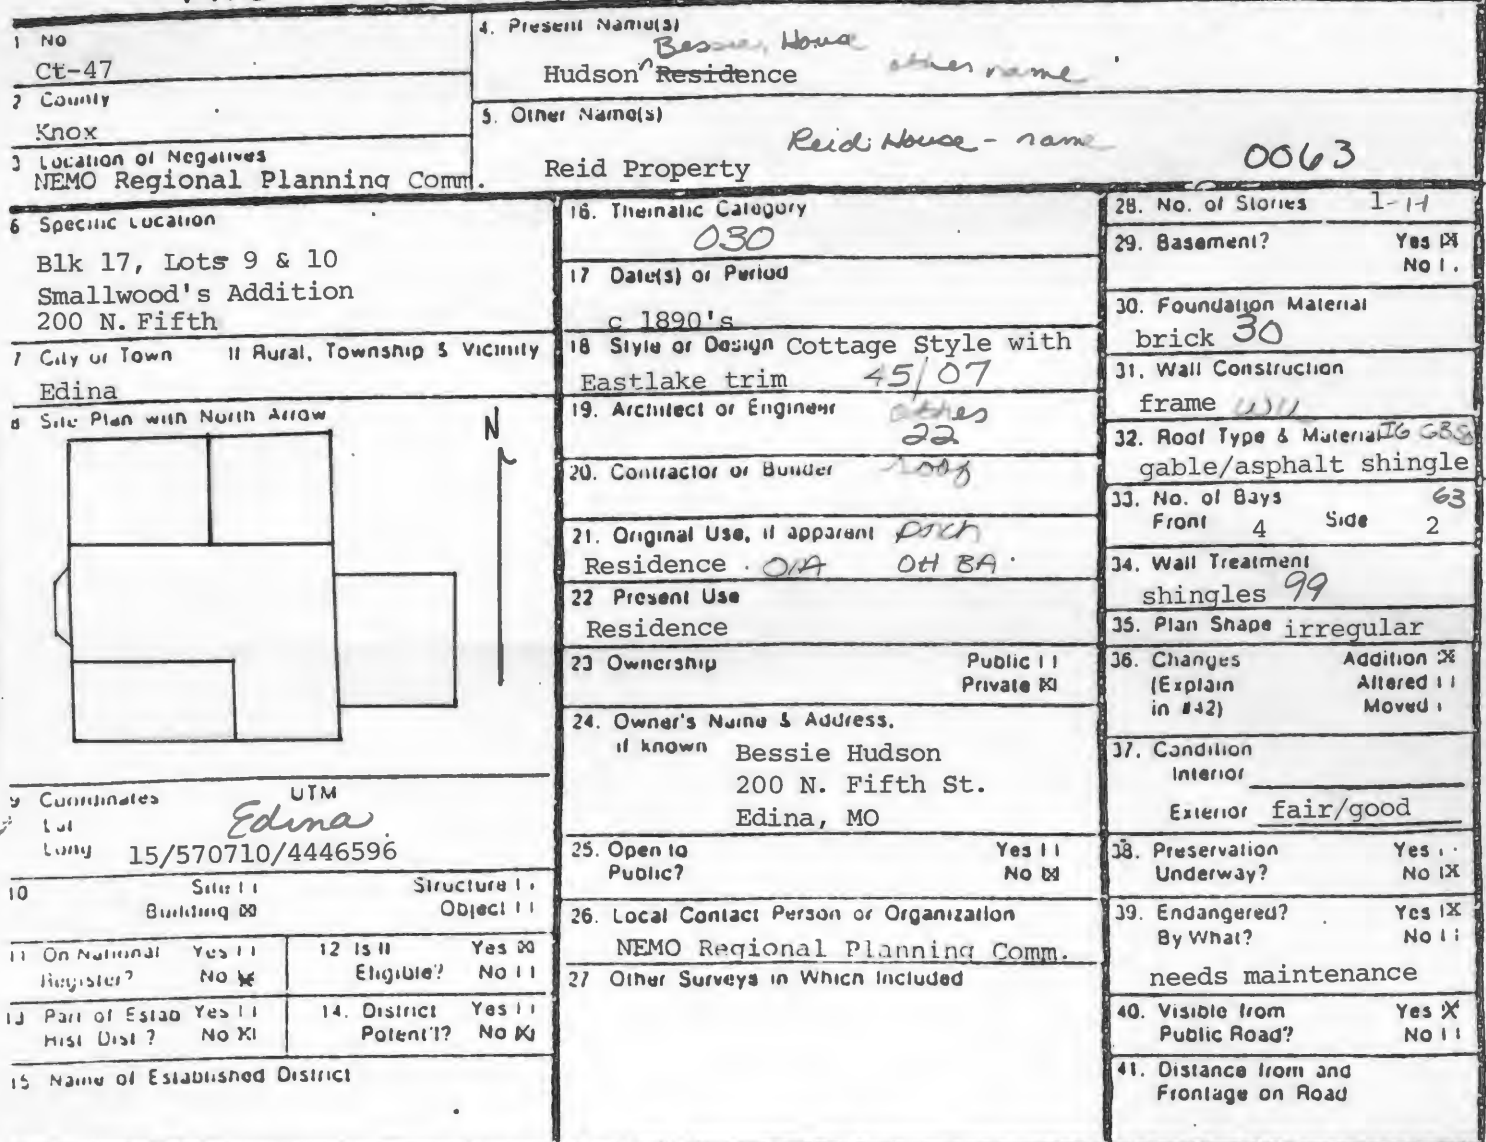 1 No
Ct-47
2 County
Knox
3 Location of Negatives
NEMO Regional Planning Comm.
4. Present Name(s)
Bessie, House
Hudson ^ Residence other name
5. Other Name(s)
Reid House - name
Reid Property
0063
6 Specific Location
Blk 17, Lots 9 & 10
Smallwood's Addition
200 N. Fifth
7 City or Town If Rural, Township & Vicinity
Edina
8 Site Plan with North Arrow
N
9 Coordinates UTM
Lat Edina
Long 15/570710/4446596
10 Site Structure
Building [X] Object
11 On National Yes
Register? No [X]
12 Is It Yes [X]
Eligible? No
13 Part of Estab Yes
Hist Dist? No [X]
14. District Yes
Potent'l? No [X]
15 Name of Established District
16. Thematic Category
030
17 Date(s) or Period
c 1890's
18 Style or Design Cottage Style with
Eastlake trim 45/07
19. Architect or Engineer others
22
20. Contractor or Builder roof
21. Original Use, if apparent porch
Residence OH BA
22 Present Use
Residence
23 Ownership Public
Private [X]
24. Owner's Name & Address,
if known Bessie Hudson
200 N. Fifth St.
Edina, MO
25. Open to Yes
Public? No [X]
26. Local Contact Person or Organization
NEMO Regional Planning Comm.
27 Other Surveys in Which Included
28. No. of Stories 1-
29. Basement? Yes [X]
No
30. Foundation Material
brick 30
31. Wall Construction
frame
32. Roof Type & Material
gable/asphalt shingle
33. No. of Bays 63
Front 4 Side 2
34. Wall Treatment
shingles 99
35. Plan Shape irregular
36. Changes Addition [X]
(Explain Altered
in #42) Moved
37. Condition
Interior
Exterior fair/good
38. Preservation Yes
Underway? No [X]
39. Endangered? Yes [X]
By What? No
needs maintenance
40. Visible from Yes [X]
Public Road? No
41. Distance from and
Frontage on Road